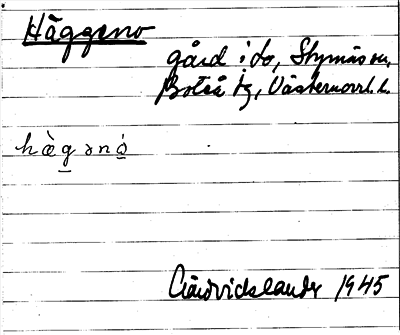 Häggeno
gård i do, Styrnäs sn,
Boteå tg, Västernorrl. l.
hὰg̲ənó̲
Gårdvidslander 1945